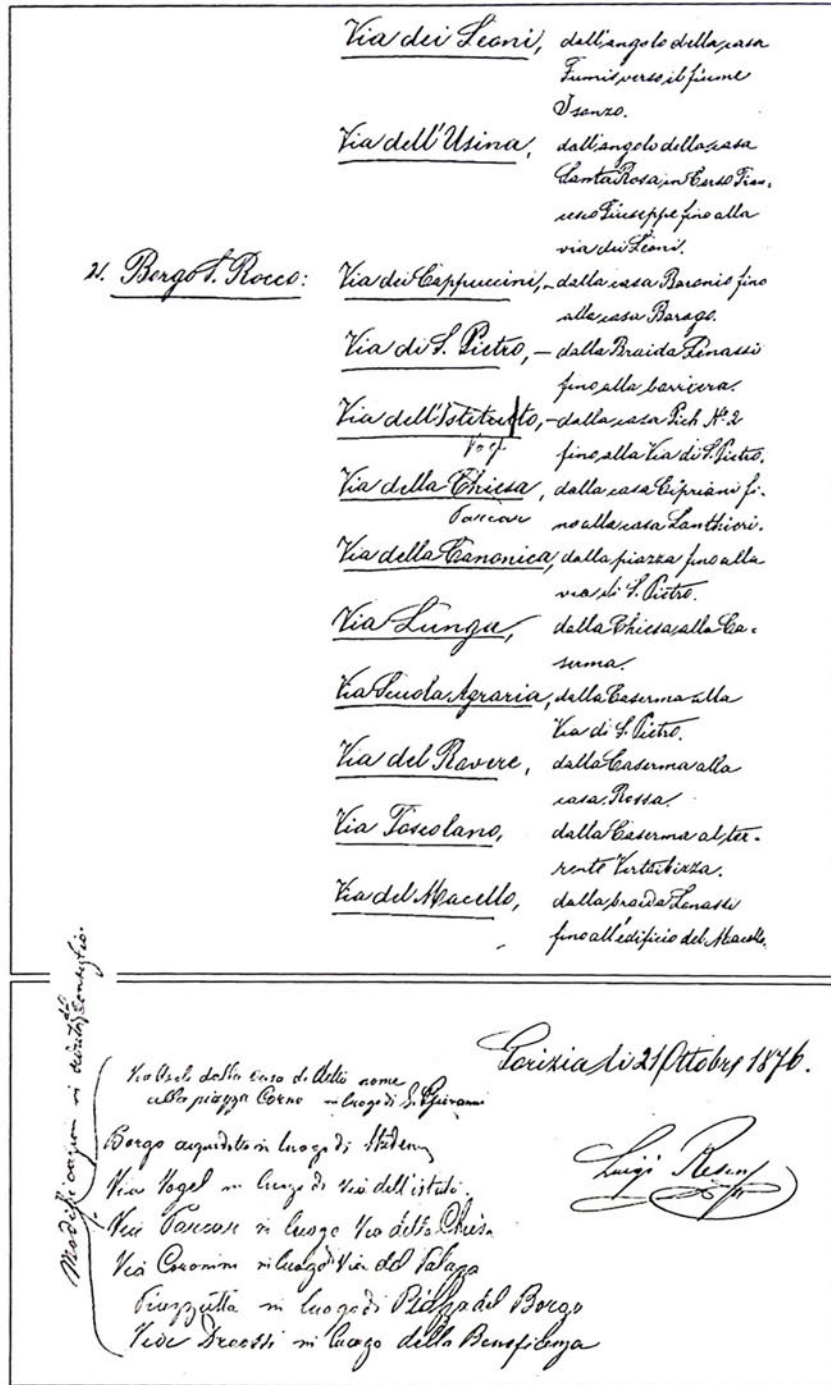 Via dei Leoni, dall'angolo della casa
Fumis verso il fiume
Isonzo.
Via dell'Usina, dall'angolo della casa
Santa Rosa in Corso Fran-
cesco Giuseppe fino alla
via dei Leoni.
21. Borgo S. Rocco: Via dei Cappuccini, - dalla casa Baronio fino
alla casa Barago.
Via di S. Pietro, - dalla Braida Lenassi
fino alla barriera.
Via dell'Istituto, - dalla casa Pich Nº 2
Vogel fino alla Via di S. Pietro.
Via della Chiesa, dalla casa Cipriani fi-
no alla casa Lanthieri.
Via della Canonica, dalla piazza fino alla
via di S. Pietro.
Via Lunga, dalla Chiesa alla Ca-
serma.
Via Scuola Agraria, dalla Caserma alla
Via di S. Pietro.
Via del Rovere, dalla Caserma alla
casa Rossa.
Via Toscolano, dalla Caserma al tor-
rente Vertoibizza.
Via del Macello, dalla braida Lenassi
fino all'edificio del Macello.
Modificazioni
Gorizia li 21 Ottobre 1876.
Via Ascoli dalla casa di detto nome
alla piazza Corno in luogo di S. Giovanni
Borgo acquedotto in luogo di
Luigi
Via Vogel in luogo di via dell'istituto
Via Parcar in luogo Via della Chiesa
Via Coronini in luogo di Via del Palazzo
Piazzutta in luogo di Piazza del Borgo
in luogo della Beneficenza